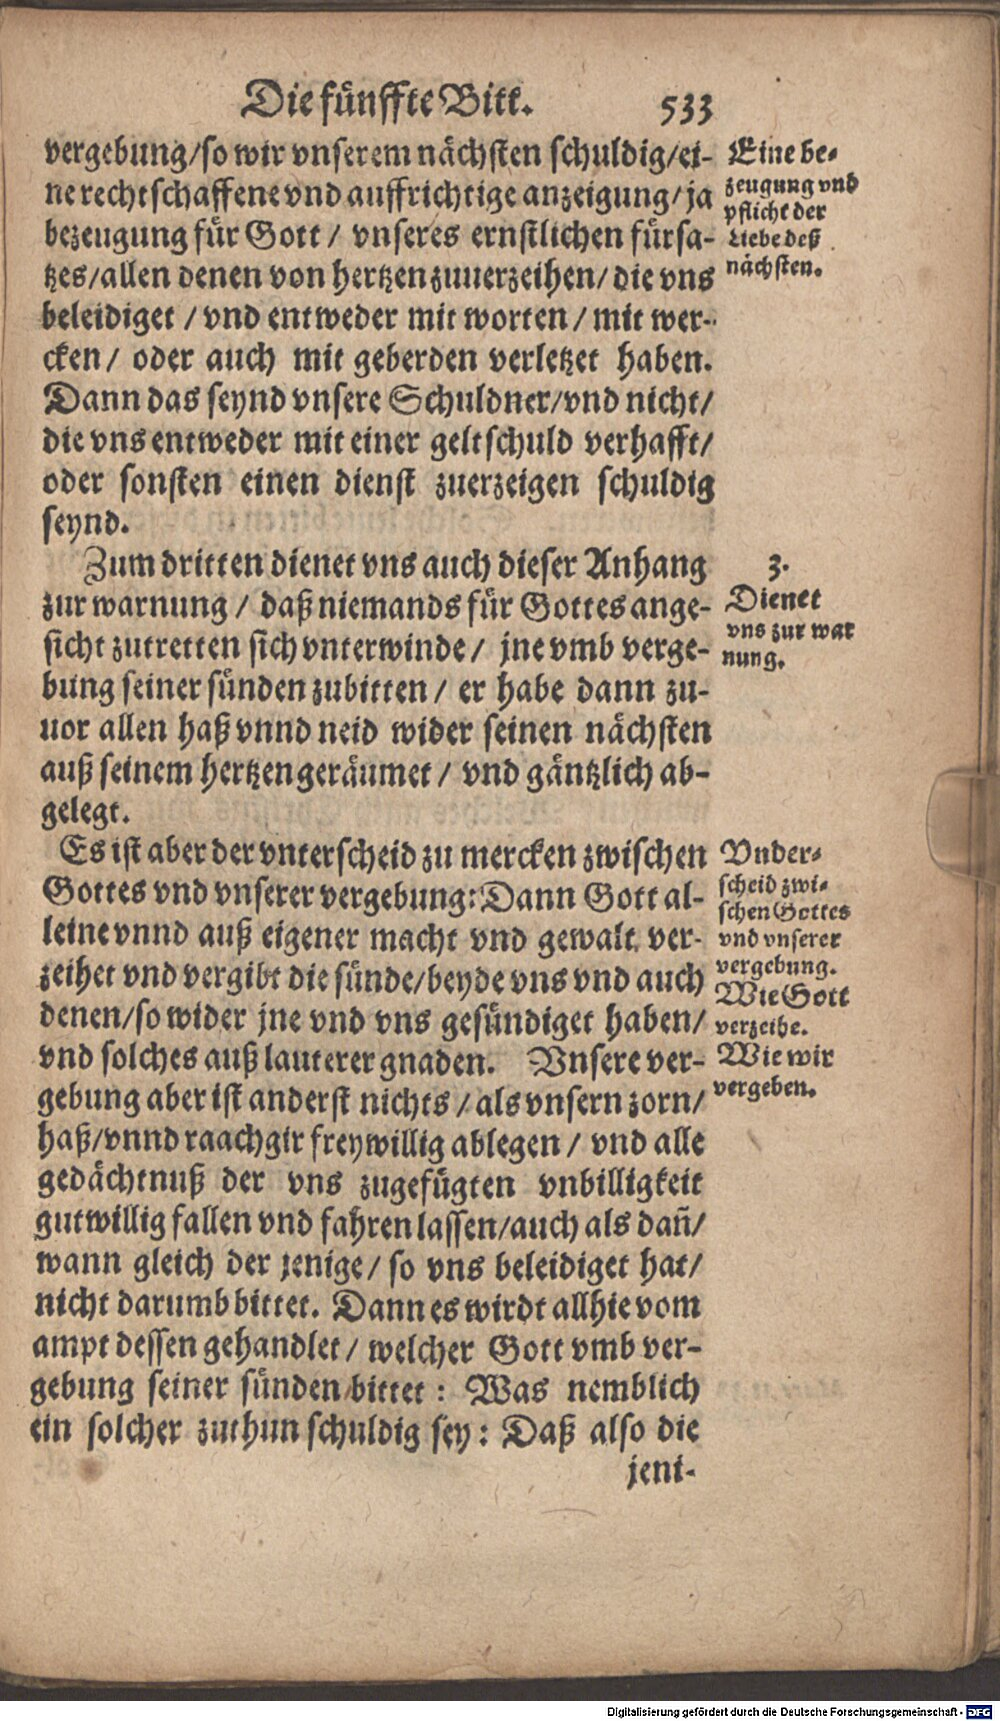 Die fünffte Bitt. 533
vergebung/so wir vnserem nächsten schuldig/ei-
ne rechtschaffene vnd auffrichtige anzeigung/ja
bezeugung für Gott/ vnseres ernstlichen fürsa-
tzes/allen denen von hertzen zuuerzeihen/ die vns
beleidiget / vnd entweder mit worten / mit wer-
cken/ oder auch mit geberden verletzet haben.
Dann das seynd vnsere Schuldner/vnd nicht/
die vns entweder mit einer geltschuld verhafft/
oder sonsten einen dienst zuerzeigen schuldig
seynd.
Eine be-
zeugung vnd
pflicht der
Liebe deß
nächsten.
Zum dritten dienet vns auch dieser Anhang
zur warnung / daß niemands für Gottes ange-
sicht zutretten sich vnterwinde/ jne vmb verge-
bung seiner sünden zubitten / er habe dann zu-
uor allen haß vnnd neid wider seinen nächsten
auß seinem hertzen geräumet / vnd gäntzlich ab-
gelegt.
3.
Dienet
vns zur war
nung.
Es ist aber der vnterscheid zu mercken zwischen
Gottes vnd vnserer vergebung: Dann Gott al-
leine vnnd auß eigener macht vnd gewalt ver-
zeihet vnd vergibt die sünde/beyde vns vnd auch
denen/so wider jne vnd vns gesündiget haben/
vnd solches auß lauterer gnaden. Vnsere ver-
gebung aber ist anderst nichts / als vnsern zorn/
haß/vnnd raachgir freywillig ablegen / vnd alle
gedächtnuß der vns zugefügten vnbilligkeit
gutwillig fallen vnd fahren lassen/auch als dañ/
wann gleich der jenige/ so vns beleidiget hat/
nicht darumb bittet. Dann es wirdt allhie vom
ampt dessen gehandlet/ welcher Gott vmb ver-
gebung seiner sünden bittet : Was nemblich
ein solcher zuthun schuldig sey : Daß also die
jeni-
Vnder-
scheid zwi-
schen Gottes
vnd vnserer
vergebung.
Wie Gott
verzeihe.
Wie wir
vergeben.
Digitalisierung gefördert durch die Deutsche Forschungsgemeinschaft - DFG